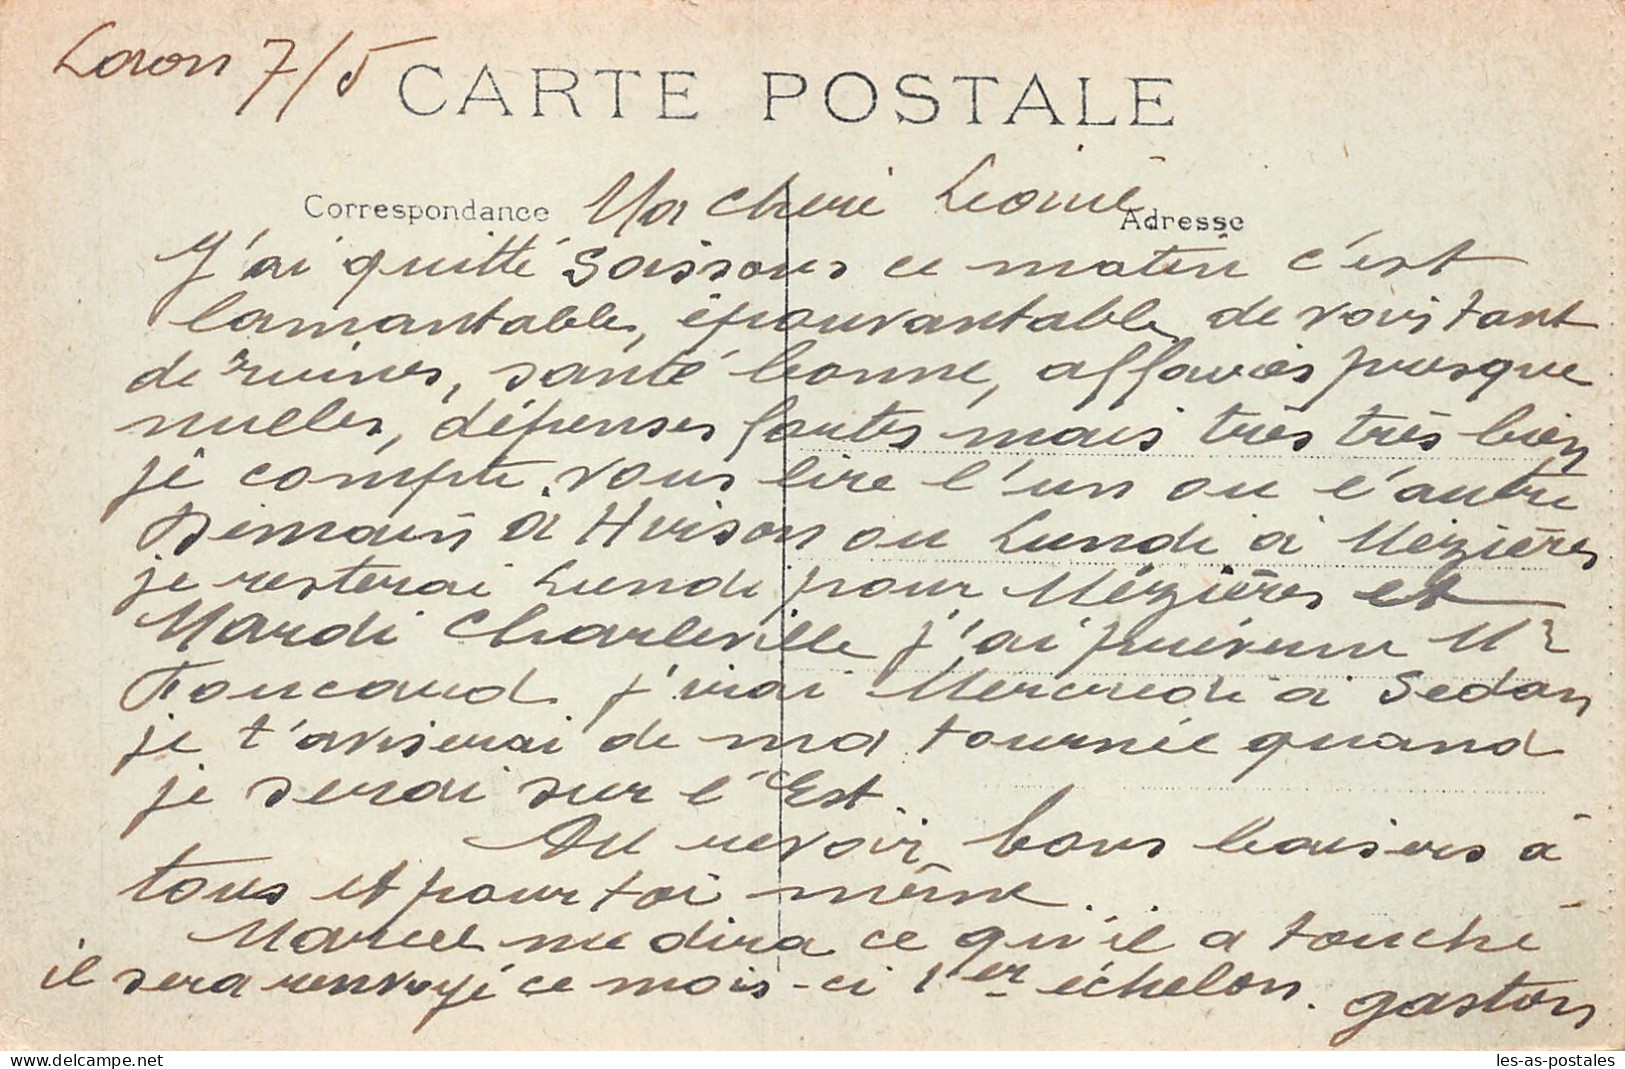 Laon 7/5
CARTE POSTALE
Correspondance
Adresse
Ma cheri Leonie
J'ai quitté Soissons ce matin c'est
lamantable, épouvantable de vois tant
de ruines, santé bonne, affaires presque
nulles, dépenses fortes mais très très bien
je compte vous lire l'un ou l'autre
Demain à Hirson ou Lundi à Mézières
je resterai Lundi pour Mézières et
Mardi Charleville j'ai prévenu Mr
Foucaud j'irai Mercredi à Sedan
je t'aviserai de ma tournée quand
je serai sur l'Est.
Au revoir bons baisers à
tous et pour toi même.
Marcel me dira ce qu'il a touché
il sera renvoyé ce mois-ci 1er échelon. gaston
les-as-postales
www.delcampe.net